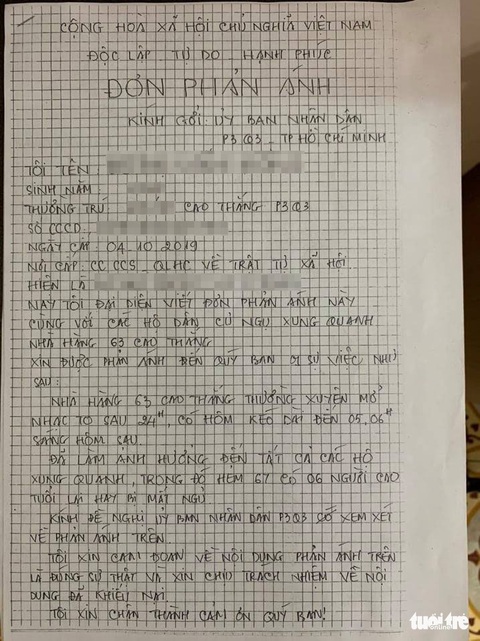 CỘNG HOÀ XÃ HỘI CHỦ NGHĨA VIỆT NAM
ĐỘC LẬP TỰ DO HẠNH PHÚC
ĐƠN PHẢN ÁNH
KÍNH GỞI: ỦY BAN NHÂN DÂN
P3 Q3, TP HỒ CHÍ MINH
TÔI TÊN:
SINH NĂM:
THƯỜNG TRÚ: CAO THẮNG P3Q3
SỐ CCCD:
NGÀY CẤP: 04.10.2019
NƠI CẤP: CC CCS QLHC VỀ TRẬT TỰ XÃ HỘI
HIỆN LÀ
NAY TÔI ĐẠI DIỆN VIẾT ĐƠN PHẢN ÁNH NÀY
CÙNG VỚI CÁC HỘ DÂN CƯ NGỤ XUNG QUANH
NHÀ HÀNG 63 CAO THẮNG
XIN ĐƯỢC PHẢN ÁNH ĐẾN QUÝ BAN 01 SỰ VIỆC NHƯ
SAU:
NHÀ HÀNG 63 CAO THẮNG THƯỜNG XUYÊN MỞ
NHẠC TO SAU 24H, CÓ HÔM KÉO DÀI ĐẾN 05, 06H
SÁNG HÔM SAU.
ĐÃ LÀM ẢNH HƯỞNG ĐẾN TẤT CẢ CÁC HỘ
XUNG QUANH, TRONG ĐÓ HẺM 67 CÓ 06 NGƯỜI CAO
TUỔI LẠI HAY BỊ MẤT NGỦ
KÍNH ĐỀ NGHỊ ỦY BAN NHÂN DÂN P3Q3 SỚ XEM XÉT
VỀ PHẢN ÁNH TRÊN.
TÔI XIN CAM ĐOAN VỀ NỘI DUNG PHẢN ÁNH TRÊN
LÀ ĐÚNG SỰ THẬT VÀ XIN CHỊU TRÁCH NHIỆM VỀ NỘI
DUNG ĐÃ KHIẾU NẠI.
TÔI XIN CHÂN THÀNH CÁM ƠN QUÝ BAN!
tuổi trẻ
online